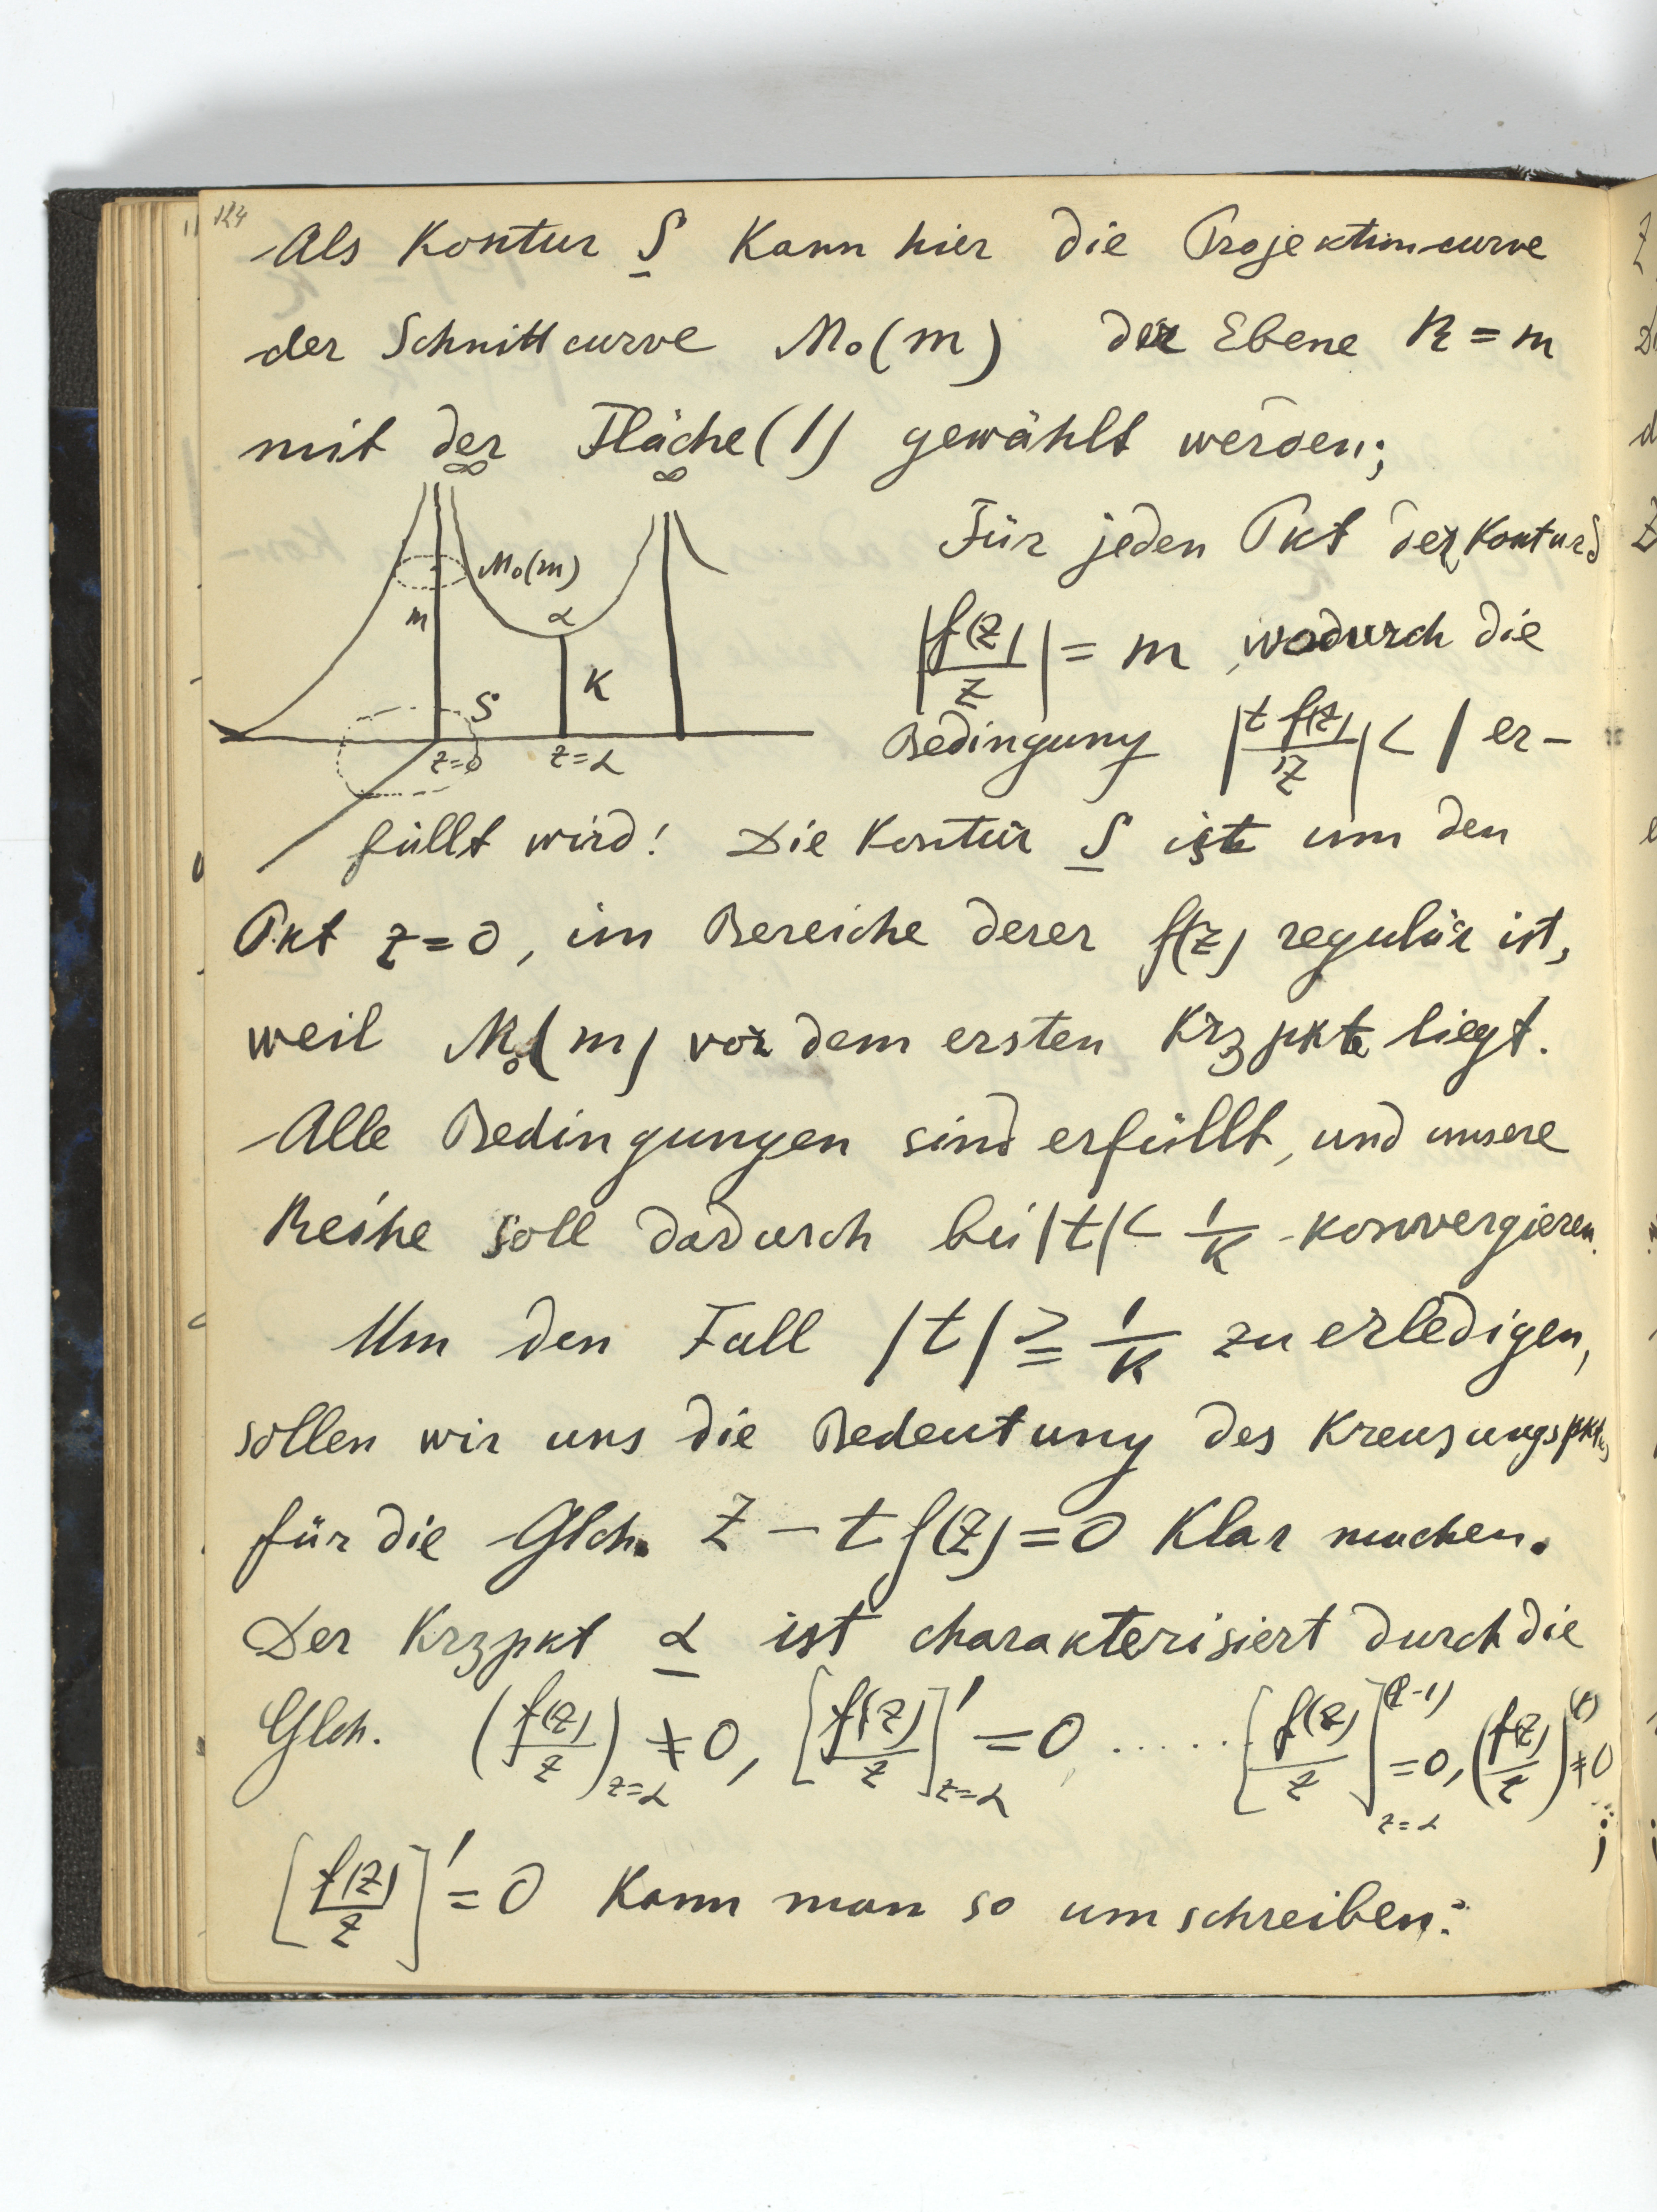 124
Als Kontur S kann hier die Projektioncurve
der Schnittcurve M₀(m) der Ebene R = m
mit der Fläche (1) gewählt werden;
∞ ∞
Für jeden Pkt der Kontur S
M₀(m)
m
α
K
S
z=0
z=α
|f(z)/z| = m, wodurch die
Bedingung |t f(z)/z| < 1 er-
füllt wird! Die Kontur S ist um den
Pkt z=0, im Bereiche derer f(z) regulär ist,
weil M₀(m) vor dem ersten Krzpkte liegt.
Alle Bedingungen sind erfüllt, und unsere
Reihe soll dadurch bei |t| < 1/K konvergieren.
Um den Fall |t| ≧ 1/K zu erledigen,
sollen wir uns die Bedeutung des Kreuzungspktes
für die Glch. z – t f(z) = 0 klar machen.
Der Krzpkt α ist charakterisiert durch die
Glch. (f(z)/z)_{z=α} ≠ 0, [f(z)/z]'_{z=α} = 0 ...... [f(z)/z]^{(l-1)}_{z=α} = 0, (f(z)/z)^{(l)} ≠ 0;
[f(z)/z]' = 0 kann man so umschreiben: